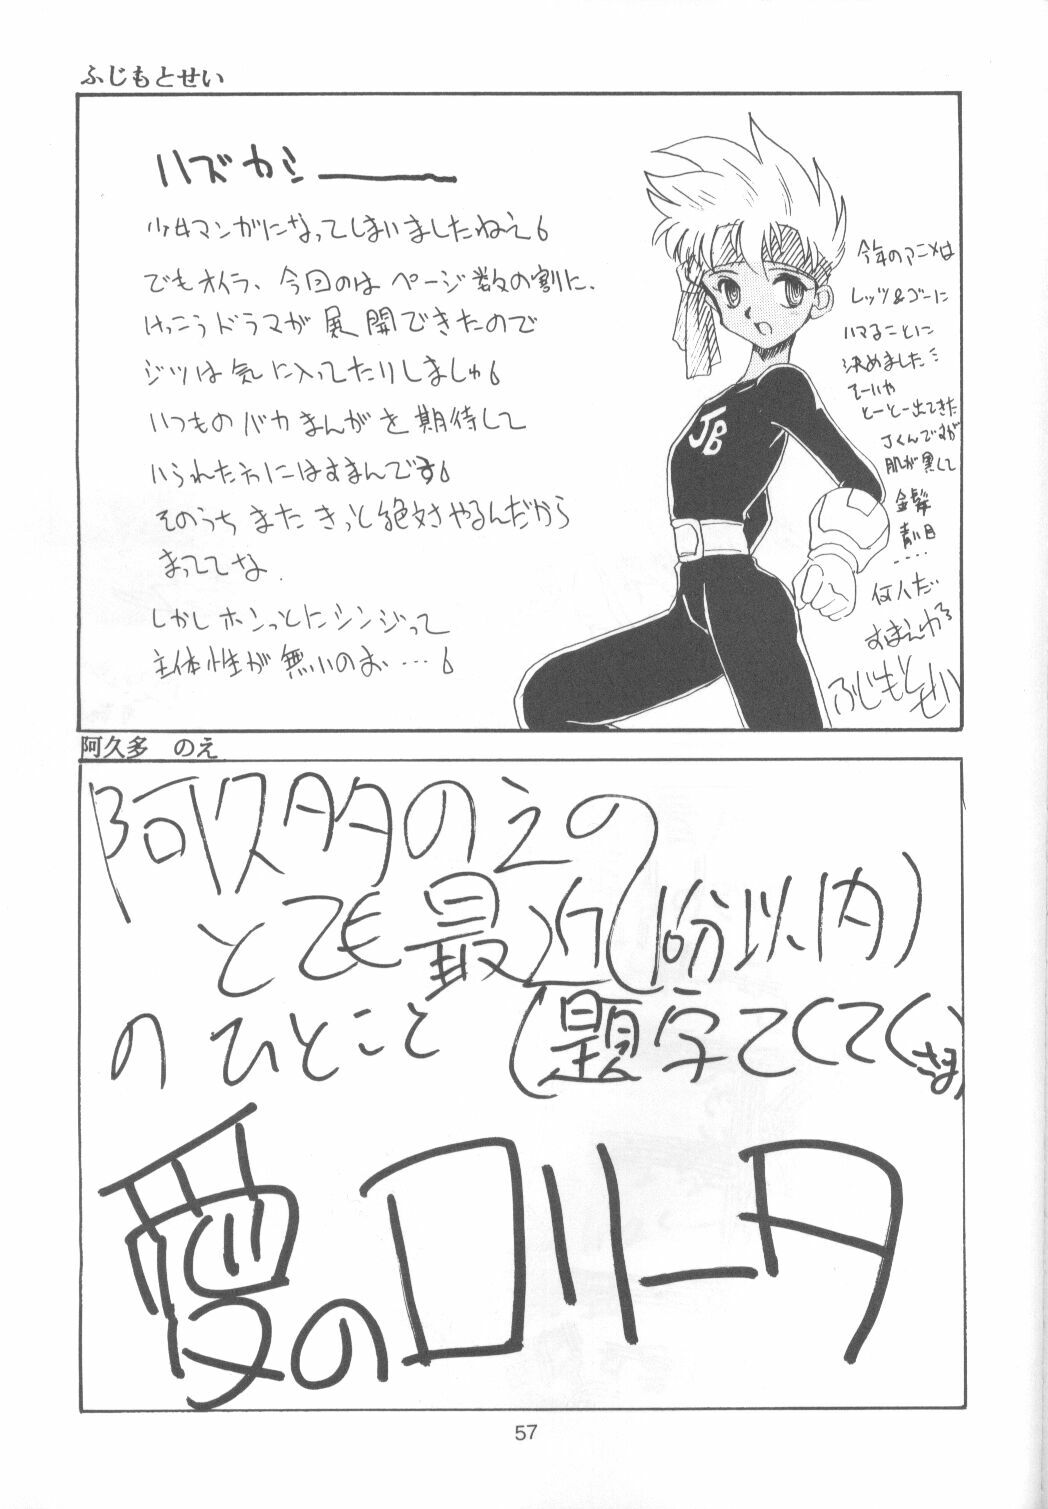 ふじもとせい
ハズカシ――
少年マンガになってしまいましたねえ
でもオイラ、今回のはページ数の割に、
けっこうドラマが展開できたので
ジツは気に入ってたりしましゅ
いつものバカまんがを期待して
いられた方にはすまんです
そのうちまたきっと絶対やるんだから
まっててな
しかしホンっとにシンジって
主体性が無いのお…
今年のアニメは
レッツ&ゴーに
ハマることに
決めました…
てーいや
とーとー出てきた
Jくんですが
肌が黒くて
金髪
青い目
....
何人だ
ふじもとせい
JB
阿久多 のえ
阿久多のえの
とても最近(1分以内)
のひとこと(題字てくてくさま)
愛のロリータ
57